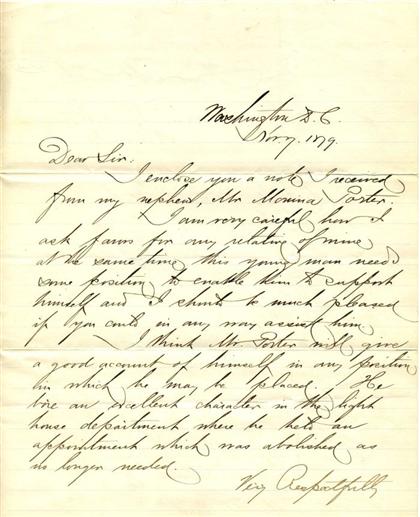 Washington D.C.
Nov 7. 1879.
Dear Sir.
I enclose you a note I received
from my nephew, Mr Porter.
I am very careful how I
ask favors for any relative of mine
at the same time this young man needs
some position to enable him to support
himself and I should be much pleased
if you could in any way assist him.
I think Mr. Porter will give
a good account of himself in any position
in which he may be placed. He
bore an excellent character in the light
house department where he held an
appointment which was abolished as
no longer needed.
Very Respectfully